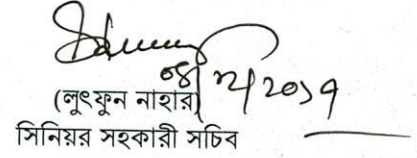 ০৪/১২/২০১৭
(লুৎফুন নাহার)
সিনিয়র সহকারী সচিব